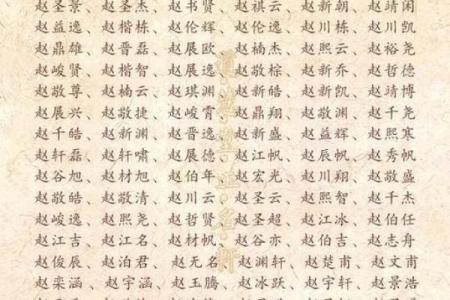 赵圣景、赵圣杰、赵书贤、赵祺云、赵新朝、赵靖闲
赵益逸、赵楷栋、赵伦辉、赵逸云、赵川栋、赵川凯
赵鼎雄、赵晋磊、赵展欧、赵楠杰、赵熙云、赵裕尧
赵峻贤、赵楷智、赵展逸、赵敬棕、赵新乔、赵哲德
赵敬尊、赵楠云、赵琪渊、赵新皓、赵新凯、赵靖博
赵展兴、赵敬捷、赵峻霄、赵鼎翔、赵敬渊、赵千尧
赵千皓、赵新渊、赵晋逸、赵新盛、赵益辉、赵熙寒
赵轩磊、赵轩啸、赵展德、赵江帆、赵辰帆、赵秀帆
赵谷旭、赵材旭、赵伯年、赵宏光、赵川翔、赵敬盛
赵敬皓、赵敬清、赵川云、赵圣云、赵熙智、赵千杰
赵峻逸、赵熙尧、赵哲贤、赵圣超、赵江冰、赵伯任
赵江吉、赵江名、赵材帆、赵谷亦、赵伯吉、赵志舟
赵俊辰、赵泊君、赵无名、赵渊轩、赵楚甫、赵文甫
赵栾涵、赵宇涵、赵玉腾、赵冰跃、赵宇轩、赵景浩